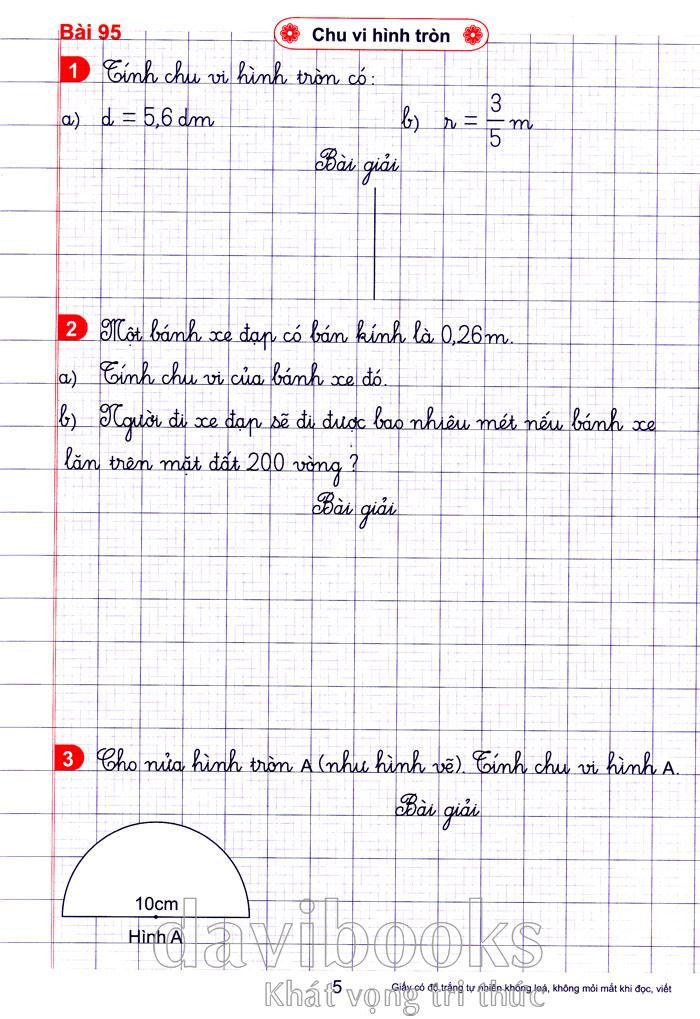 Bài 95
Chu vi hình tròn
1 Tính chu vi hình tròn có:
a) d = 5,6 dm b) r = 3/5 m
Bài giải
2 Một bánh xe đạp có bán kính là 0,26m.
a) Tính chu vi của bánh xe đó.
b) Người đi xe đạp sẽ đi được bao nhiêu mét nếu bánh xe
lăn trên mặt đất 200 vòng?
Bài giải
3 Cho nửa hình tròn A (như hình vẽ). Tính chu vi hình A.
Bài giải
10cm
Hình A
davibooks
Khát vọng tri thức
5
Giấy có độ trắng tự nhiên không loá, không mỏi mắt khi đọc, viết